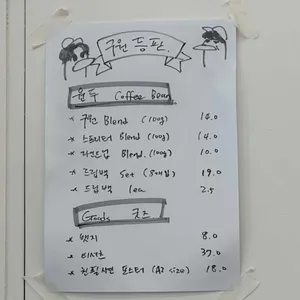 구원 등판.
원두 Coffee Bean
* 구원 Blend (100g) 16.0
* 스트리터 Blend (100g) 14.0
* 라인드업 Blend. (100g) 10.0
* 드립백 Set (5개입) 19.0
* 드립백 1ea 2.5
Goods 굿즈
* 뱃지 8.0
* 티셔츠 37.0
* 친필사인 포스터 (A3 size) 18.0